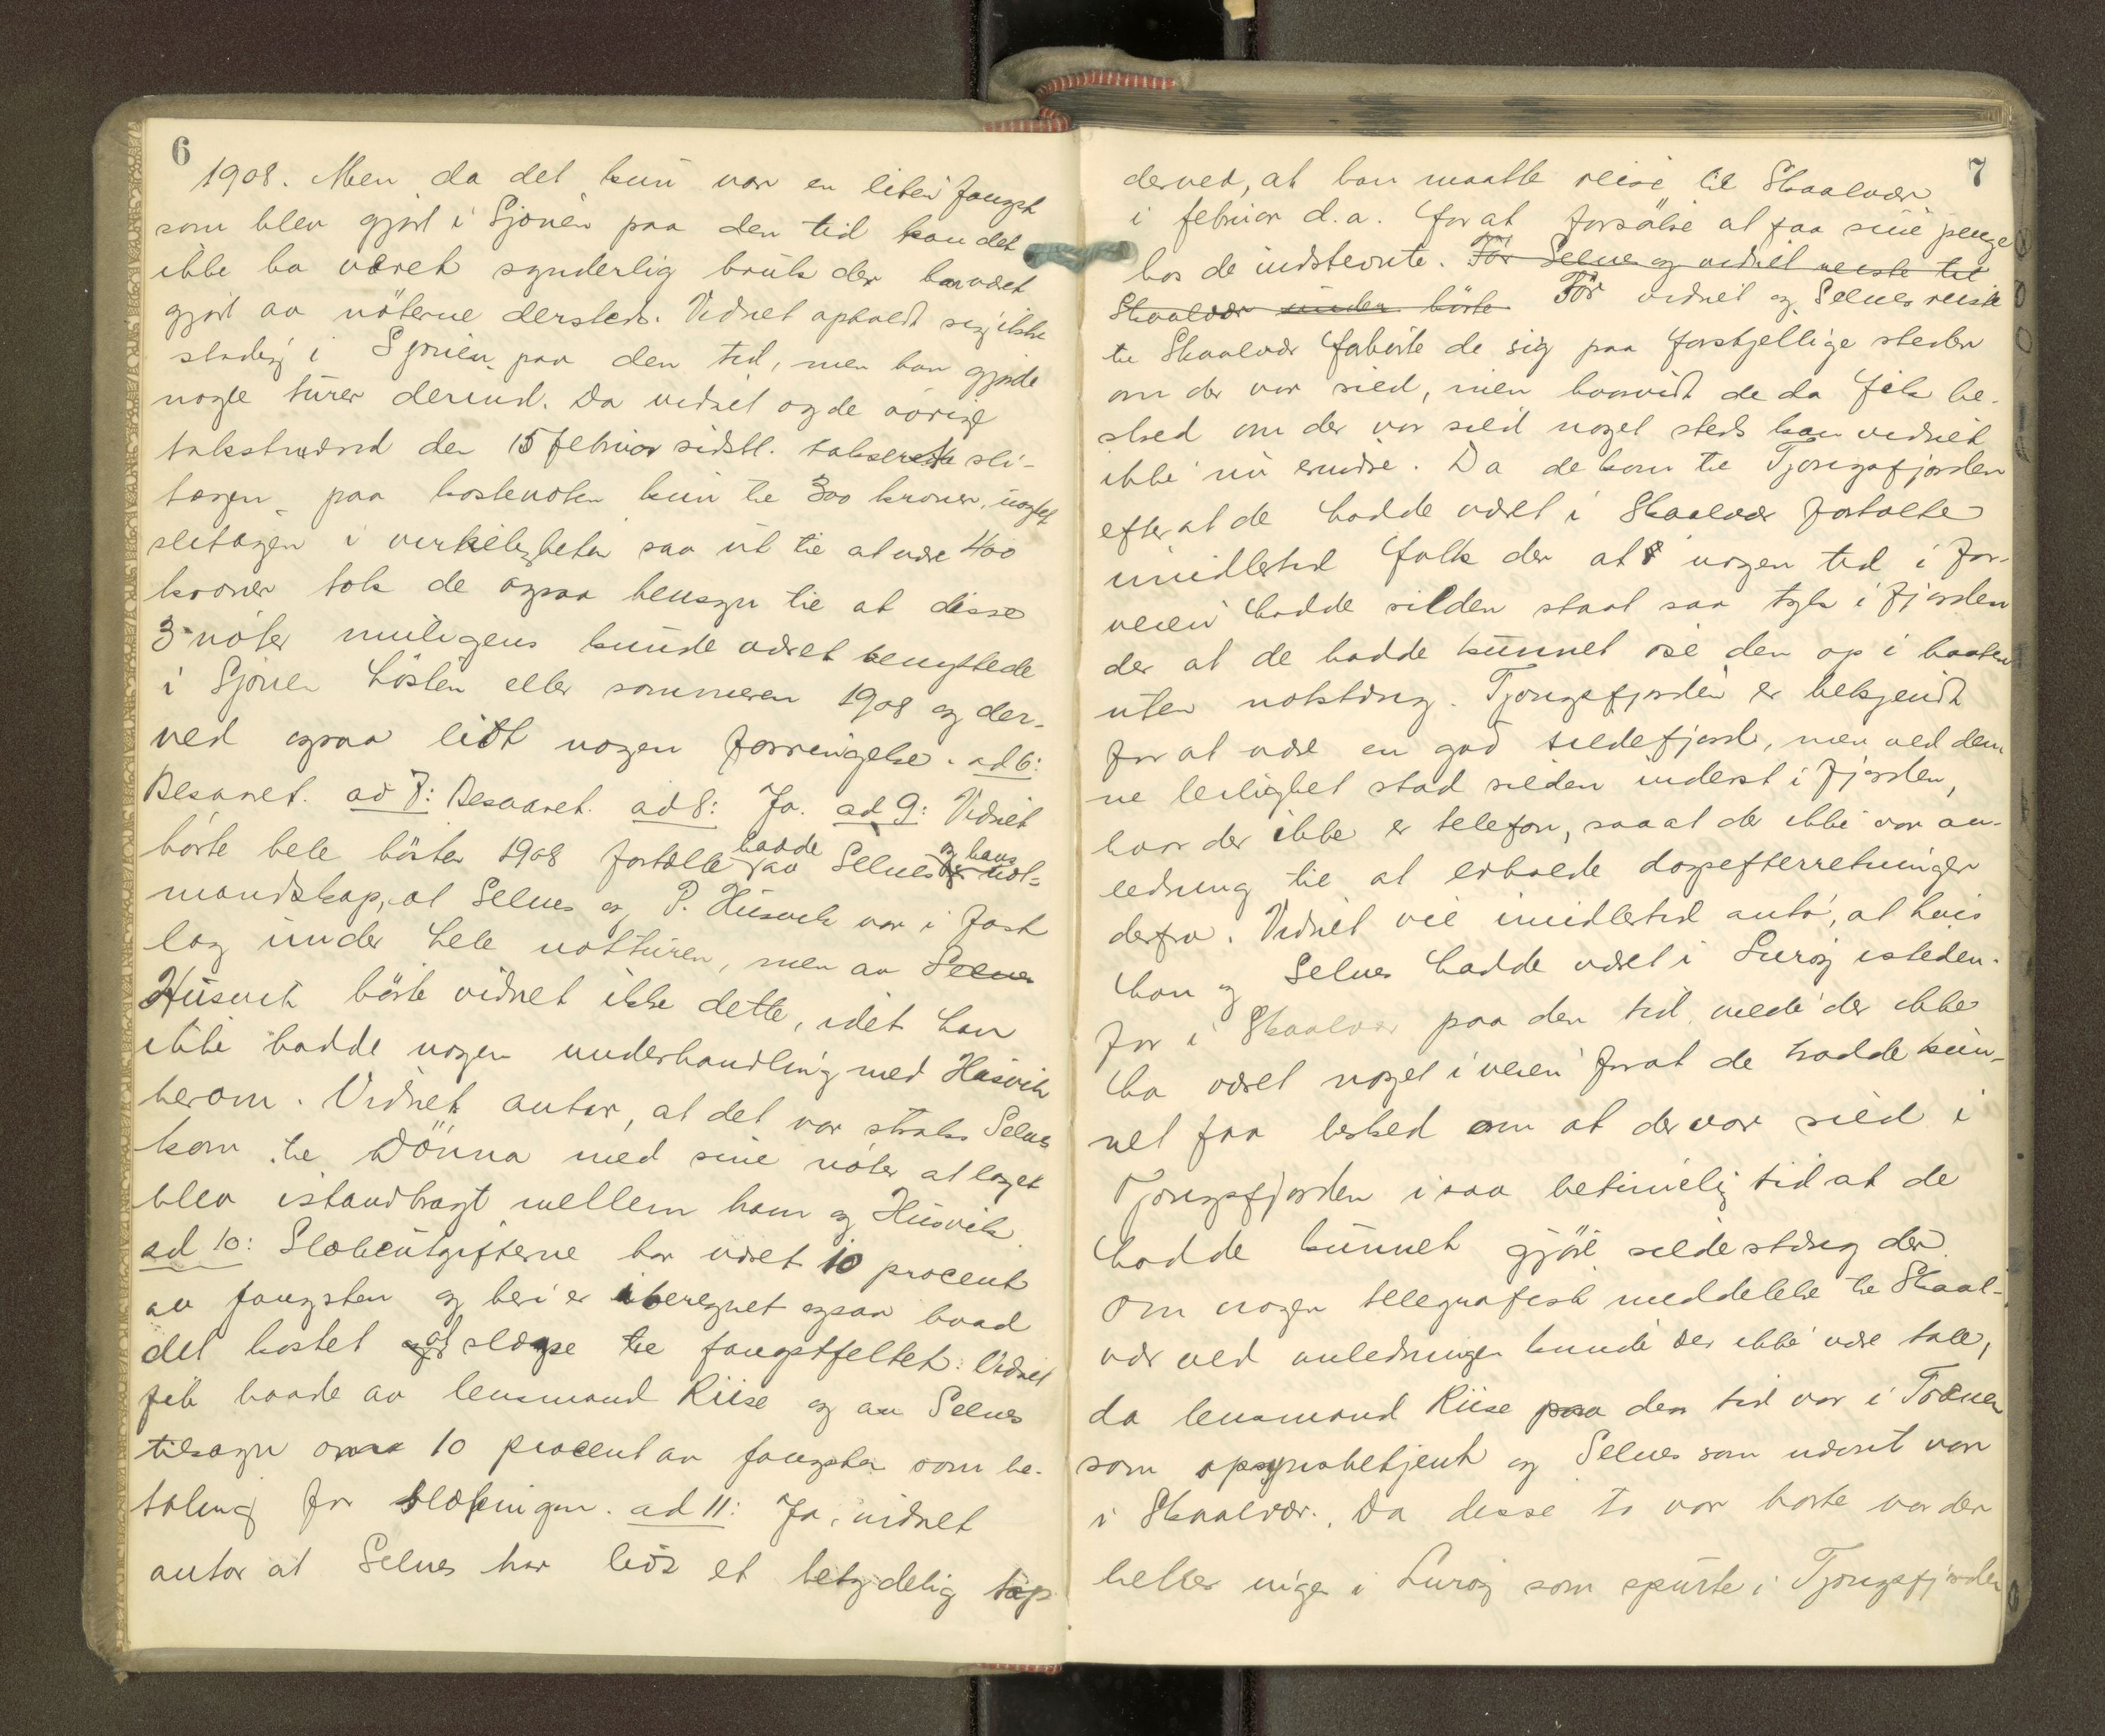 6
1908. Men da det kun var en liten fangst
som blev gjort i Sjonen paa den tid kan det
ikke ha været synderlig bruk der har været
gjort av nöterne dersteds. Vidnet opholdt sig ikke
stadig i Sjonen paa den tid, men han gjorde
nogle turer derind. Da vidnet og de övrige
takstmænd den 15 februar sidstl. takserte sli-
tagen paa kastenoten kun til 300 kroner, uagtet
slitagen i virkeligheten saa ut til at være 400
kroner tok de ogsaa hensyn til at disse
3 nöter muligens kunde været benyttede
i Sjonen hösten eller sommeren 1908 og der-
ved ogsaa lidt nogen forringelse. ad 6:
Besvaret. ad 7: Besvaret. ad 8: Ja. ad 9: Vidnet
hadde og hans
hörte hele hösten 1908 fortælle av Selnes og not-
mandskap, at Selnes og P. Husvik var i fast
lag under hele notturen, men av Selnes
Husvik hörte vidnet ikke dette, idet han
ikke hadde nogen underhandling med Husvik
herom. Vidnet antar, at det var straks Selnes
kom til Dönna med sine nöter at laget
blev istandbragt mellem ham og Husvik.
ad 10: Slæbeutgifterne har været 10 procent
av fangsten og heri er iberegnet ogsaa hvad
det kostet at slæpe til fangstfeltet. Vidnet
fik baade av lensmand Riise og av Selnes
tilsagn om 10 procent av fangsten som be-
taling for slæpningen. ad 11: Ja, vidnet
antar at Selnes har lidt et betydelig tap
7
derved, at han maatte reise til Skaalvær
i februar d.a. for at forsöke at faa sine penge
hos de indstevnte. För Selnes og vidnet reiste til
Skaalvær under hörte För vidnet og Selnes reiste
til Skaalvær forhörte de sig paa forskjellige steder
om der var sild, men hvorvidt de da fik be-
sked om der var sild noget steds kan vidnet
ikke nu erindre. Da de kom til Tjongsfjorden
efter at de hadde været i Skaalvær fortalte
imidlertid folk der at nogen tid i for-
veien hadde silden staat saa tyk i fjorden
der at de hadde kunnet öse den op i baaten
uten notstæng. Tjongsfjorden er bekjendt
for at være en god sildefjord, men ved den-
ne leilighet stod silden inderst i fjorden,
hvor der ikke er telefon, saa at der ikke var an-
ledning til at erholde dagsefterretninger
derfra. Vidnet vil imidlertid anta, at hvis
han og Selnes hadde været i Luröy isteden-
for i Skaalvær paa den tid vilde der ikke
ha været noget i veien for at de hadde kun-
net faa besked om at der var sild i
Tjongsfjorden i saa betimelig tid at de
hadde kunnet gjöre sildestæng der.
Om nogen telegrafisk meddelelse til Skaal-
vær ved anledningen kunde der ikke være tale,
da lensmand Riise paa den tid var i Trænen
som opsynsbetjent og Selnes som nævnt var
i Skaalvær. Da disse to var borte var der
heller ingen i Luröy som spurte i Tjongsfjorden